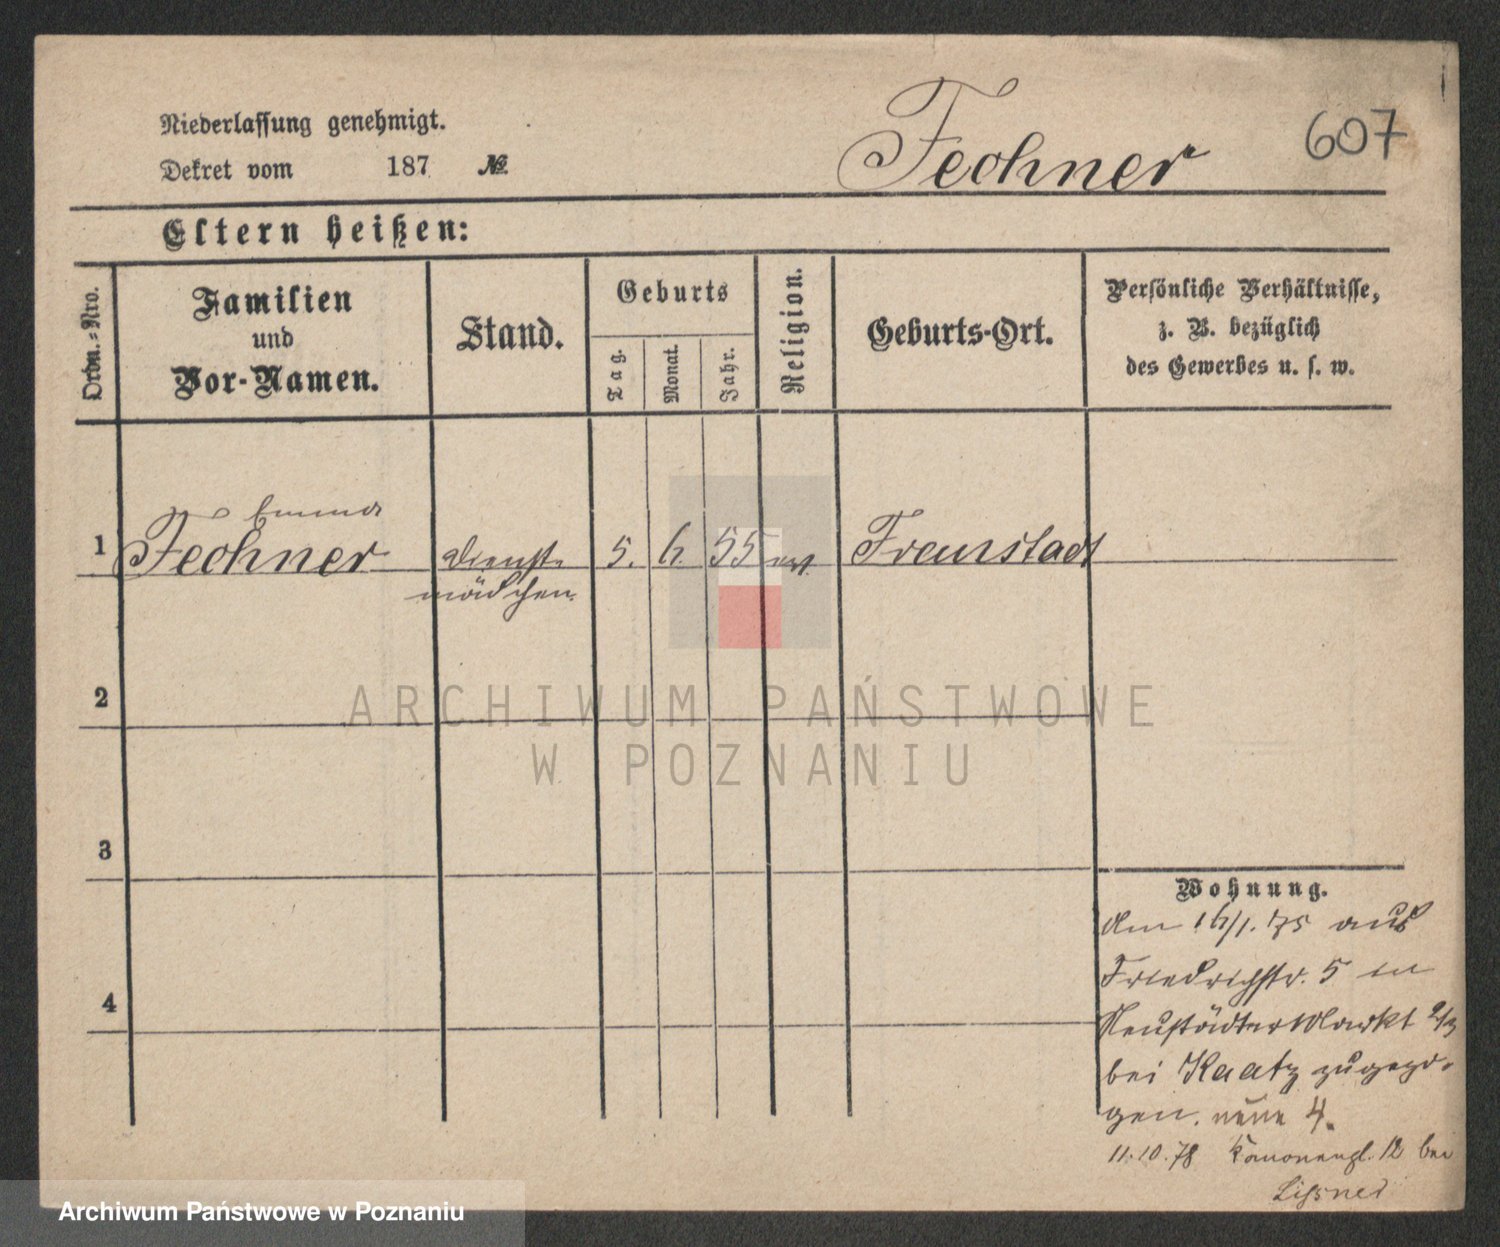 607
Niederlassung genehmigt.
Dekret vom 187 №
Fechner
Eltern heißen:
Ordn.-Nro.
Familien
und
Vor-Namen.
Stand.
Geburts
Tag.
Monat.
Jahr.
Religion.
Geburts-Ort.
Persönliche Verhältnisse,
z. B. bezüglich
des Gewerbes u. s. w.
Emma
1 Fechner Dienst- 5. 6. 55 ev. Fraustadt
mädchen
2
ARCHIWUM PAŃSTWOWE
W POZNANIU
3
4
Wohnung.
Am 16/1. 75 aus
Friedrichstr. 5 in
Neustädter Markt 2/3
bei Kaatz zugezo-
gen. 4.
11.10.78 Kanonenpl. 12 bei
Lissner
Archiwum Państwowe w Poznaniu